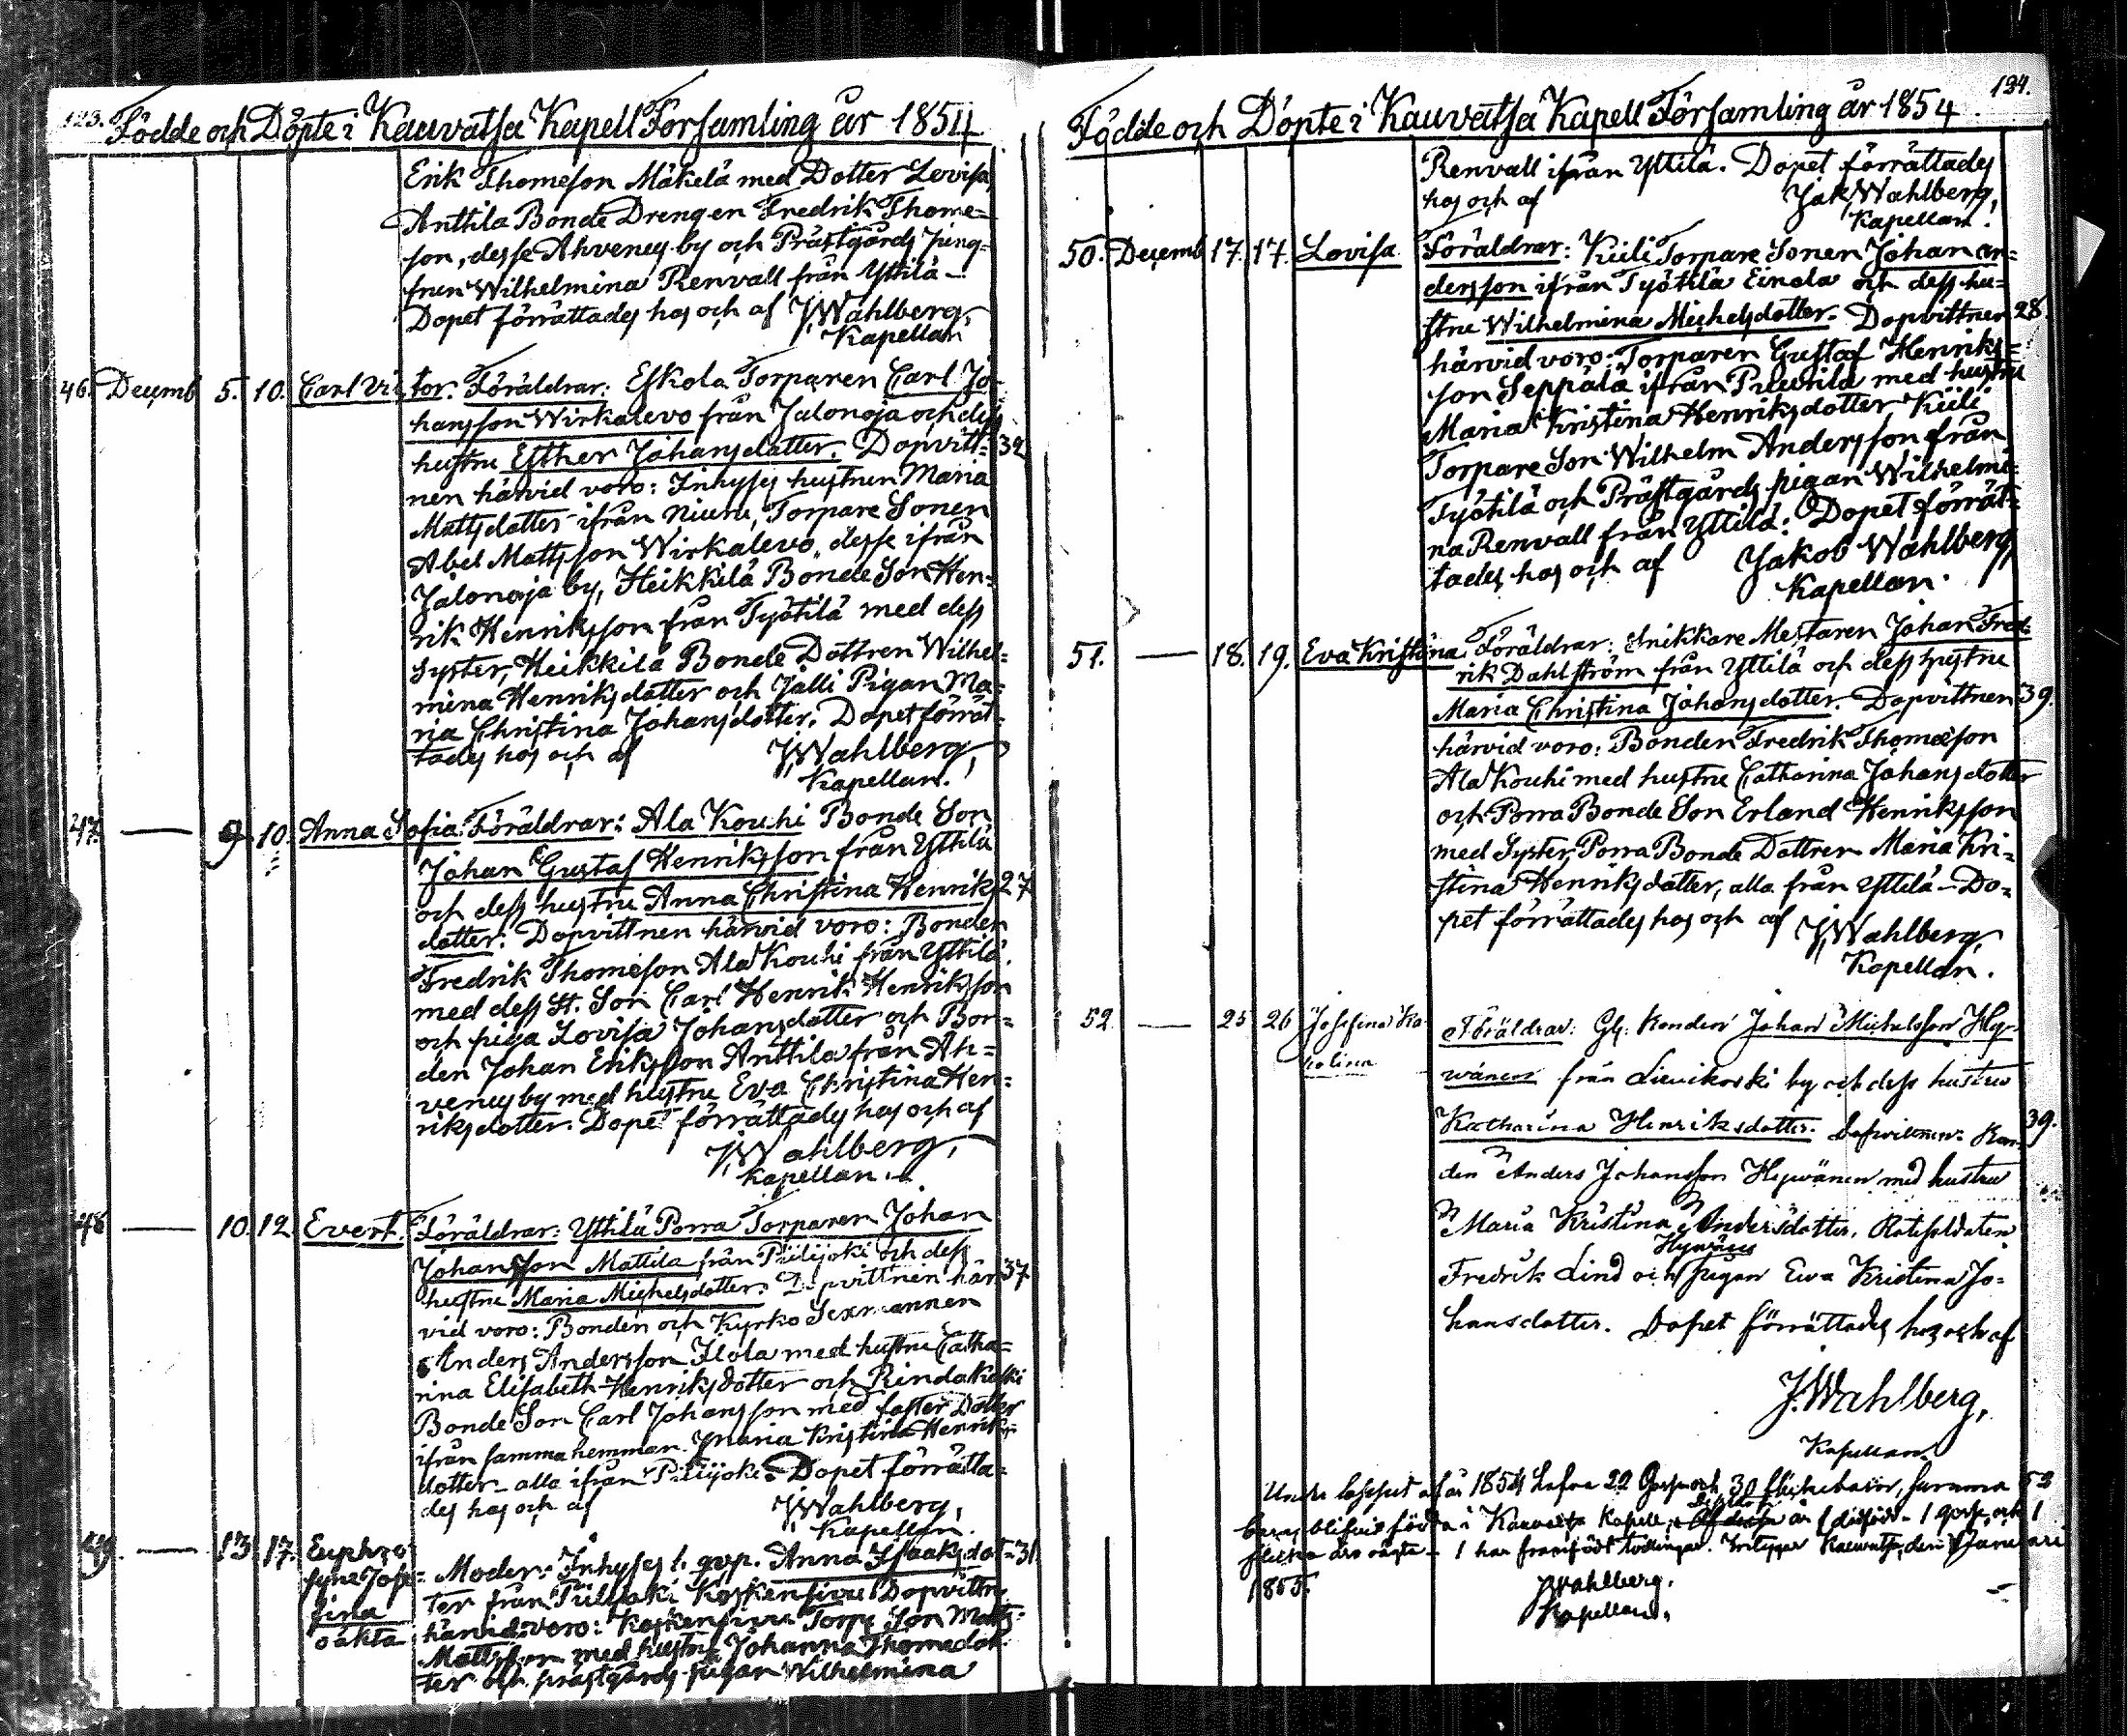 123. Födde och Döpte i Kauvatsa Kapell Församling år 1854
Erik Thomeson Mäkelä med Dotter Lovisa,
Anttila Bonde Drengen Fredrik Thome=
son, desse Ahvenus by och Prästgårds Jung=
frun Wilhelmina Renvall från Yttilä -
Dopet förrättades hos och af J. Wahlberg,
Kapellan
46. Decemb 5. 10. Carl Victor. Föräldrar: Eskola Torparen Carl Jo=
hansson Wirkalevo från Jalonoja och dess
hustru Esther Johansdotter. Dopvitt= 32
nen härvid voro: Inhyses hustrun Maria
Mattsdotter ifrån Niuru, Torpare Sonen
Abel Mattsson Wirkalevo, desse ifrån
Jalonoja by, Heikkilä Bonde Son Hen=
rik Henriksson från Työtilä med dess
Syster, Heikkilä Bonde Dottren Wilhel=
mina Henriksdotter och Jalli Pigan Ma=
ria Christina Johansdotter. Dopet förrät=
tades hos och af J. Wahlberg,
Kapellan.
47. — 9 10. Anna Sofia. Föräldrar: Ala Kouhi Bonde Son
Johan Gustaf Henriksson från Yttilä
och dess hustru Anna Christina Henriks 27
dotter. Dopvittnen härvid voro: Bonden
Fredrik Thomeson Ala Kouhi från Yttilä.
med dess St. Son Carl Henrik Henriksson
och piga Lovisa Johansdotter och Bon=
den Johan Eriksson Anttila från Ah=
venus by med hustru Eva Christina Hen=
riksdotter. Dopet förrättades hos och af
J. Wahlberg,
Kapellan.
48 — 10. 12. Evert. Föräldrar: Yttilä Porra Torparen Johan
Johansson Mattila från Piilijoki och dess
hustru Maria Michelsdotter. Dopvittnen här= 37
vid voro: Bonden och Kyrko Sexmannen
Anders Andersson Ilola med hustru Catha=
rina Elisabeth Henriksdotter och Rindakoski
Bonde Son Carl Johansson med faster Dotter
ifrån samma hemman. Maria Kristina Henriks=
dotter - alla ifrån Piilijoki. Dopet förrätta=
des hos och af J. Wahlberg,
Kapellan.
49. — 13. 17. Euphro=
syne Jose=
fina
oäkta
Moder: Inhyses Anna Isaaksdot= 31
ter från Koskensivu Dopvittn.
härvid voro: Koskensivu Torp. Son Matts
Mattsson med hustru Johanna Thomædot
ter och prästgårds pigan Wilhelmina
124.
Födde och Döpte i Kauvatsa Kapell Församling år 1854
Renvall ifrån Yttilä. Dopet förrättades
hos och af Jak. Wahlberg,
Kapellan.
50. Decemb 17. 17. Lovisa Föräldrar: Kiili Torpare Sonen Johan An=
dersson ifrån Työtilä Einola och dess hu=
stru Wilhelmina Michelsdotter. Dopvittnen 28.
härvid voro: Torparen Gustaf Henriks=
son Seppälä ifrån Puurila med hustru
Maria Kristina Henriksdotter, Kiili
Torpare Son Wilhelm Andersson från
Työtilä och Prästgårds pigan Wilhelmi=
na Renvall från Yttilä: Dopet förrät=
tades hos och af Jakob Wahlberg,
Kapellan.
51. — 18. 19. Eva Kristina Föräldrar: Snikkare Mestaren Johan Fred
rik Dahlström från Yttilä och dess hustru
Maria Christina Johansdotter. Dopvittnen 39.
härvid voro: Bonden Fredrik Thomæson
Ala Kouhi med hustru Catharina Johansdotter
och Porra Bonde Son Erland Henriksson
med Syster, Porra Bonde Dottren Maria Kri=
stina Henriksdotter, alla från Yttilä - Do=
pet förrättades hos och af J. Wahlberg,
Kapellan.
52. — 25 26 Josefina Ka-
rolina
Föräldrar: Johan Michelsson Hy-
wänen från Lievikoski by och dess hustru
Katharina Henriksdotter. Dopvittnen: Bon- 39.
den Anders Johansson Hywänen med hustru
Maria Kristina Andersdotter, Rotesoldaten
Fredrik Lind och Hywänen pigan Ewa Kristina Jo=
hansdotter. Dopet förrättades hos och af
J. Wahlberg,
Kapellan.
Under loppet af år 1854 hafva 22 Gosse och 30 flickebarn, summa 52
barn blifvit födda i Kauvatsa Kapell, är 1 dödfödd - 1 gosse och 1
flicka äro oägta - 1 har framfödt tvillingar. Kauvatsa, den Januari
1855. J. Wahlberg.
Kapellan.